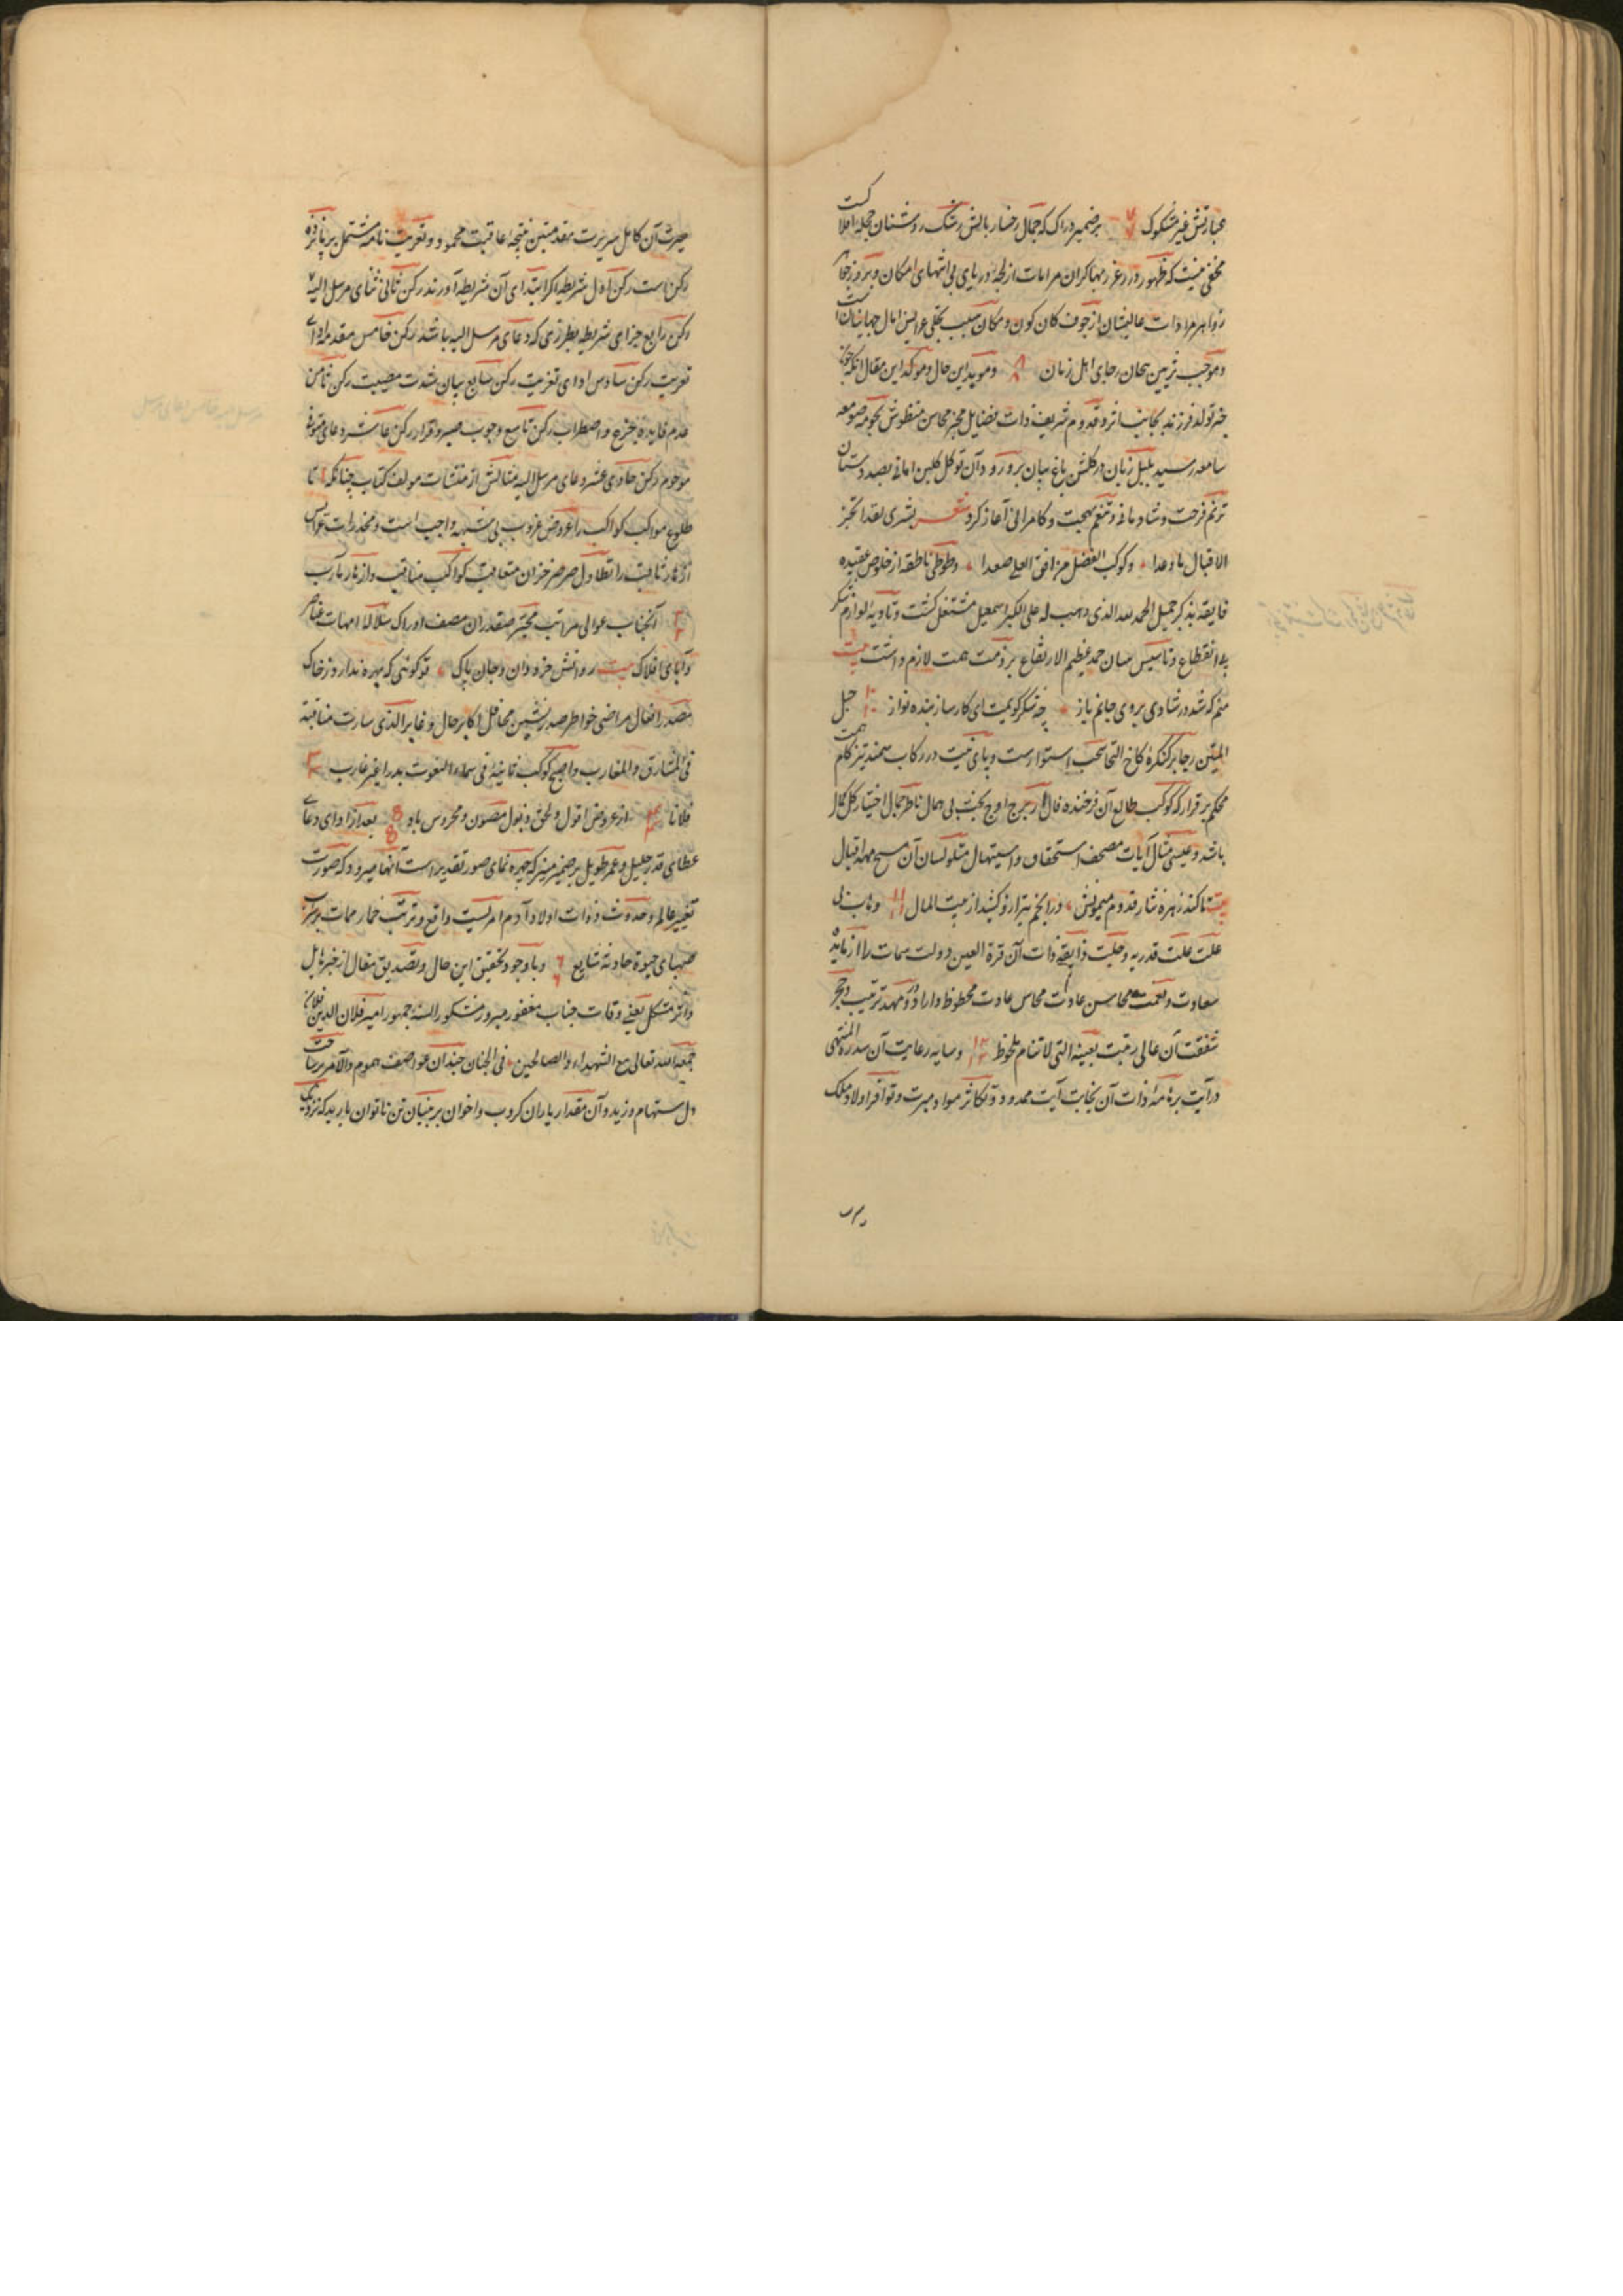 عبارتش غیر مشکوک ۷ بر ضمیر دراک که جمال رخسار بالش رشک روشنان حجله افلاکست
مخفی نیست که ظهور درر غرر مرامات از لجه دریای بی انتهای امکان و بروز جواهر
زواهر مرادات عالیشان از جوف کان کون و مکان سبب تجلی عرایس امال جهانیان است
و موجب تزیین رجای اهل زمان ۸ و موید این حال و موکد این مقال انکه چون
خبر تولد فرزند نجابت اثر و قدوم شریف ذات فضایل مخبر محاسن منظرش بحومه صومعه
سامعه رسید بلبل زبان در گلشن باغ بیان بر ورد و آن نو گل گلبن امانی بصد دستان
ترنم فرحت و شادمانی و تنغم بهجت و کامرانی آغاز کرد شعر بشری لقد انجز
الاقبال ما وعدا و کوکب الفضل من افق العلی صعدا و طوطی ناطقه از خلوص عقیده
فایقه بذکر جمیل الحمد لله الذی وهب له علی الکبر اسمعیل مشتغل کشت و تادیه لوازم شکر
بلا انقطاع و تاسیس بنیان حمد عظیم الارتفاع بر ذمت همت لازم داشت بیت
منم که شد در شادی بروی جانم باز چه شکر کویمت ای کارساز بنده نواز ۱۰ حبل
المتین رجا بر کنکره کاخ التجا استوارست و پای نیت در رکاب سمند تیز کام همت
محکم بر قرار که کوکب طالع آن فرخنده فال از برج اوج بخت بی همال ناظر جمال اختیار کل کمال
باشد و عیسی مثال آیات مصحف استحقاق و استیهال متلو لسان آن مسیح مهد اقبال
بیت تا کند زهره نثار قدوم میمونش در انجم بترازو کشد از بیت المال ۱۱
علت علت قدریه و حلیت ذایقه ذات آن قرة العین دولت سمات را از مایده
سعادت و نعمت محاسن عادت محظوظ داراد و در مهد تربیت و حجر
شفقت آن عالی رتبت بعینه التی لا تنام ملحوظ ۱۲ و سایه رعایت آن سدرة المنتهی
درایت بر نامه ذات آن نجابت آیت ممدود و تکاثر مواد مبرت و توافر اولاد ملک
سیرت آن کامل سریرت مقدمتین نتیجه عاقبت محمود و تعزیت نامه مشتمل بر یازده
رکن است رکن اول شریطه که ابتدای آن شریطه آورند رکن ثانی ثنای مرسل الیه
رکن رابع جزای شریطه بطرزی که دعای مرسل الیه باشد رکن خامس مقدمه ادای
تعزیت رکن سادس ادای تعزیت رکن سابع بیان شدت مصیبت رکن ثامن
عدم فایده جزع و اضطراب رکن تاسع وجوب صبر و قرار رکن عاشر دعای متوفی
مرحوم رکن حادی عشر دعای مرسل الیه مثالش از منشات مولف کتاب چنانکه تا
طلوع مواکب کواکب را عروض غروب بی شبهه واجب است و مخدرات عرایس
ازهار ثاقبت را تطاول صرصر خزان متعاقبت کواکب مناقب و ازهار مآرب
۲ آنجناب عوالی مراتب مخبر صفدران مصف ادراک سلاله امهات عناصر
و آبای افلاک بیت روانش خرد دان و جان پاک تو گوئی که بهره ندارد ز خاک
مصدر افعال مراضی خواطر صدر نشین محافل اکابر حال و غابر الذی سارت مناقبه
فی المشارق و المغارب و اصبح کوکب ثانیة فی سماء النعوت بدرا غیر غارب ۳
فلانا ۴ از عروض افول و لحوق ذبول مصون و محروس باد ۵ بعد از ادای دعای
عطای قدر جلیل و عمر طویل بر ضمیر منیر که چهره نمای صور تقدیر است آنها میرود که صورت
تغییر عالم و حدوث ذوات اولاد آدم امریست واقع و ترتب خمار ممات بر شرب
صهبای حیوة حادثه شایع ۶ و با وجود تحقیق این حال و تصدیق مقال از خبر هایل
و اثر مشکل یعنی وفات جناب مغفور مبرور مشکور السنه جمهور امیر فلان الدین فلان
جمعه الله تعالی مع الشهداء و الصالحین فی الجنان چندان عواصف هموم و آلام بر ساحت
دل مستهام وزید و آن مقدار باران کروب و احزان بر بنیان تن ناتوان بارید که نزدیک